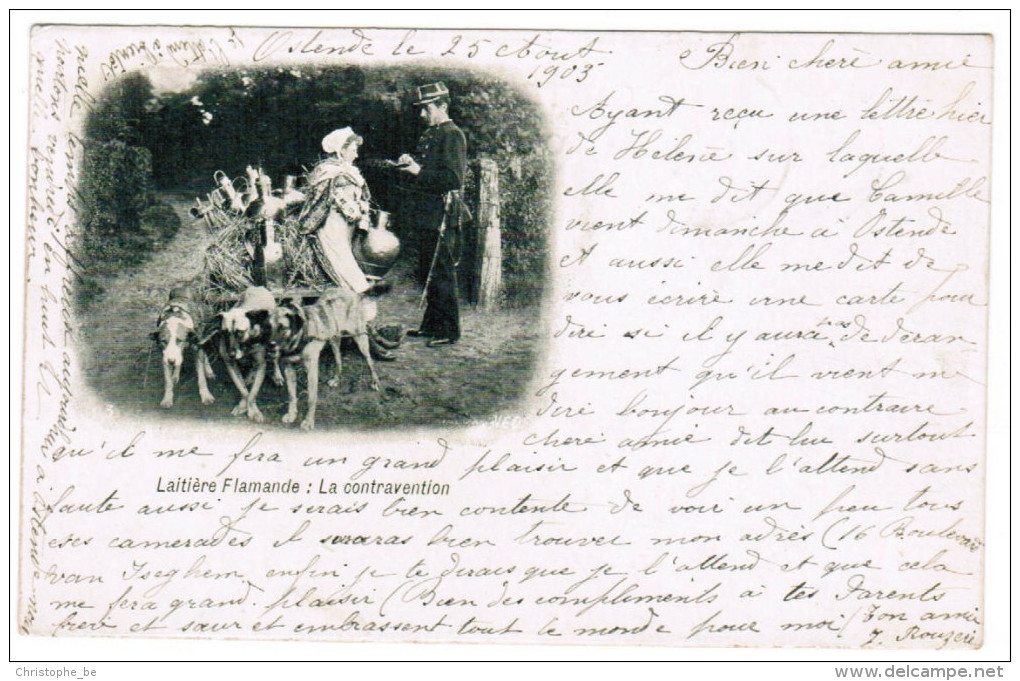 Ostende le 25 Aout
1903
Bien chère amie
Ayant reçu une lettre hier
de Hélène sur laquelle
elle me dit que Camille
vient dimanche à Ostende
et aussi elle me dit de
vous écrire une carte pour
dire si il y aura pas de deran-
gement qu'il vient me
dire bonjour au contraire
chere amie dit lui surtout
qu'il me fera un grand plaisir et que je l'attend sans
Laitière Flamande : La contravention
faute aussi je serais bien contente de voir un peu tous
ses camerades il bien trouver mon adrès (16 Boulevard
van Iseghem, enfin je te dirais que je l'attend et que cela
me fera grand plaisir (Bien des compliments à tes Parents
frère et sœur et embrassent tout le monde pour moi) Ton amie
J. Rouzeré
je l'attend
quelle
Christophe_be